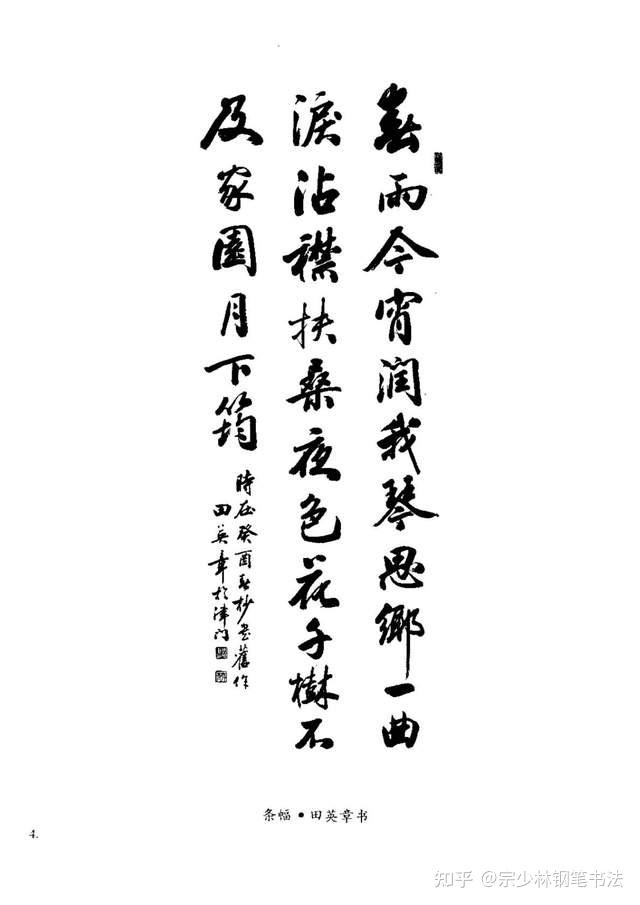 春雨今宵润我琴思鄉一曲
淚沾襟扶桑夜色花千樹不
及家園月下筠
時在癸酉春杪書舊作
田英章於津门
条幅·田英章书
4.
知乎 @宗少林钢笔书法